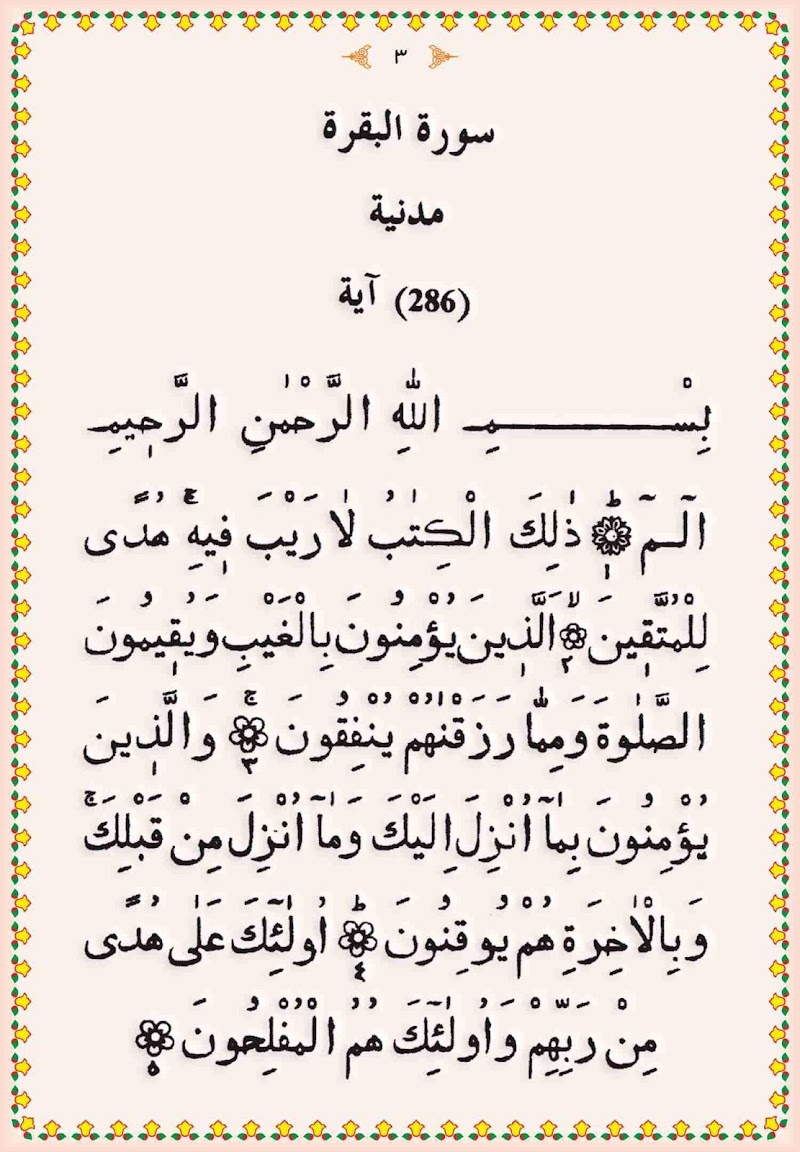 ٣
سورة البقرة
مدنية
(286) آية
بِسْمِ اللّٰهِ الرَّحْمٰنِ الرَّحِيمِ
الٓـمٓ ۚ ١ ذٰلِكَ الْكِتٰبُ لَا رَيْبَ فِيهِ ۚ هُدًى
لِلْمُتَّقِينَ ۙ ٢ الَّذِينَ يُؤْمِنُونَ بِالْغَيْبِ وَيُقِيمُونَ
الصَّلٰوةَ وَمِمَّا رَزَقْنٰهُمْ يُنْفِقُونَ ۚ ٣ وَالَّذِينَ
يُؤْمِنُونَ بِمَآ اُنْزِلَ اِلَيْكَ وَمَآ اُنْزِلَ مِنْ قَبْلِكَ ۚ
وَبِالْاٰخِرَةِ هُمْ يُوقِنُونَ ؕ ٤ اُولٰٓئِكَ عَلٰى هُدًى
مِنْ رَبِّهِمْ وَاُولٰٓئِكَ هُمُ الْمُفْلِحُونَ ٥